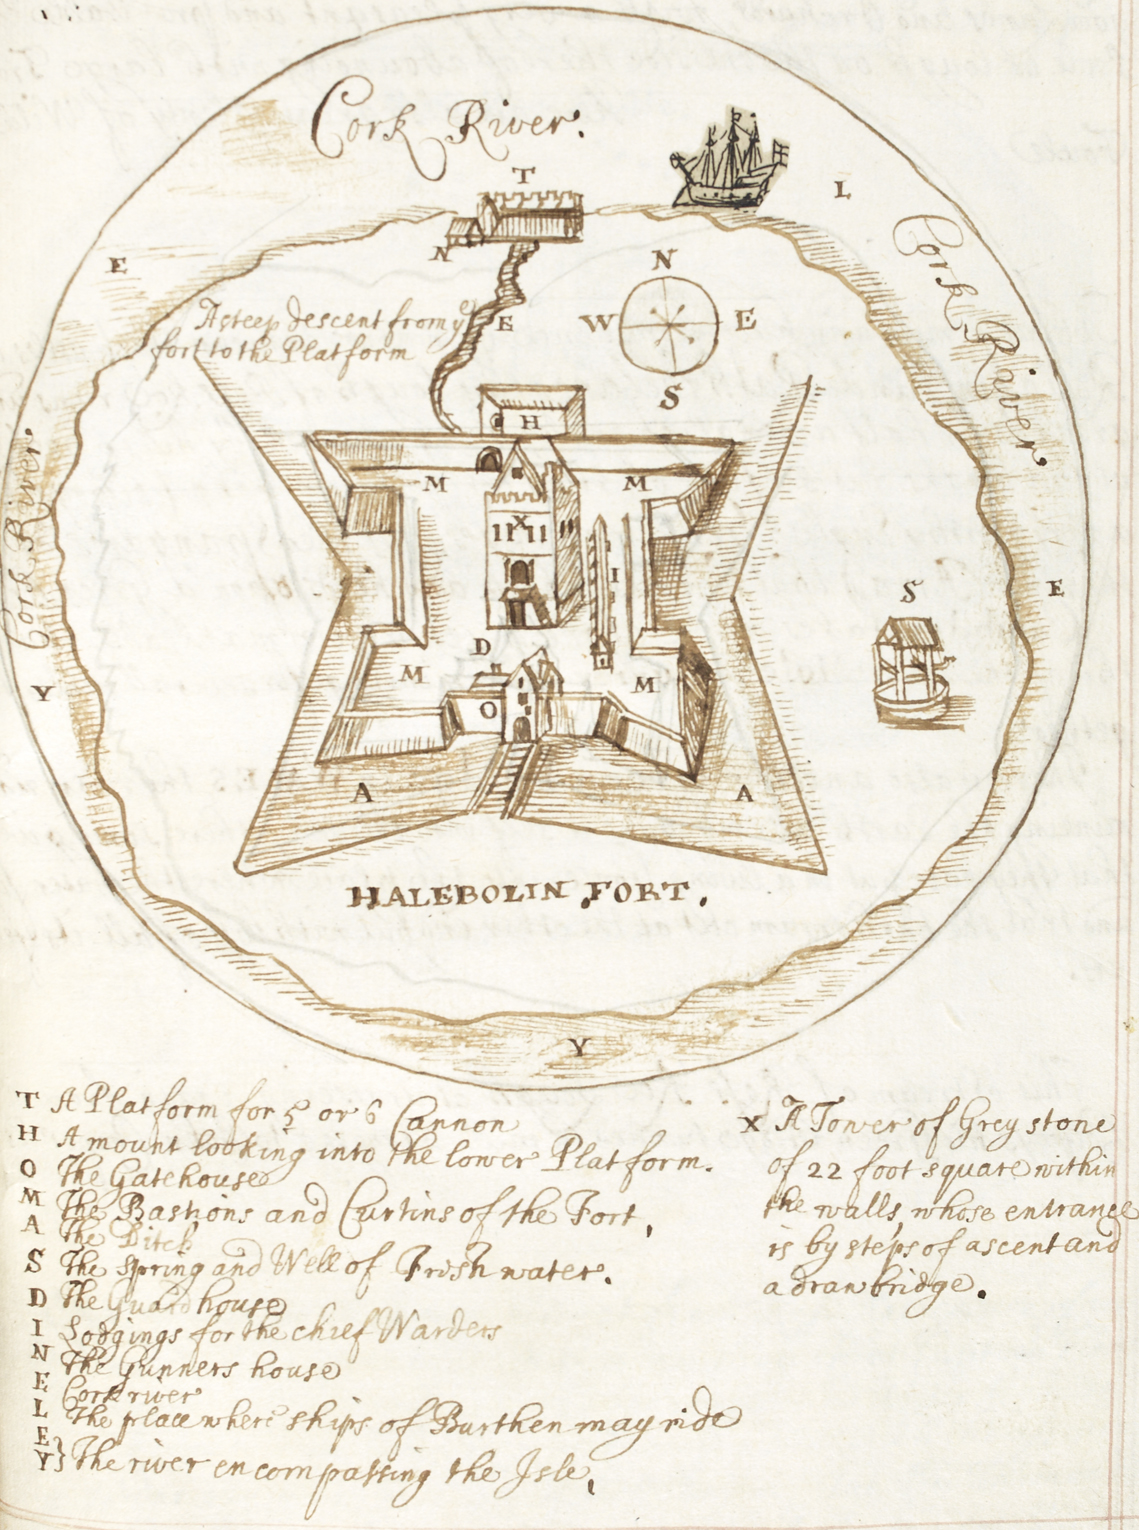 Cork River.
T
L
N
E
Cork River
A steep descent from yͤ
fort to the Platform
E
N
W E
S
H
M M
Cork River.
X
I
S
E
D
M M
Y
O
A A
HALEBOLIN FORT.
Y
T A Platform for 5 or 6 Cannon
H A mount looking into the lower Platform.
O The Gatehouse
M The Bastions and Curtins of the Fort,
A The Ditch
S The spring and Well of Fresh water.
D The Guard house
I Lodgings for the chief Warders
N The Gunners house
E Cork river
L The place where ships of Burthen may ride
E
Y } The river encompassing the Isle,
X A Tower of Grey stone
of 22 foot square within
the walls, whose entrance
is by steps of ascent and
a drawbridge.